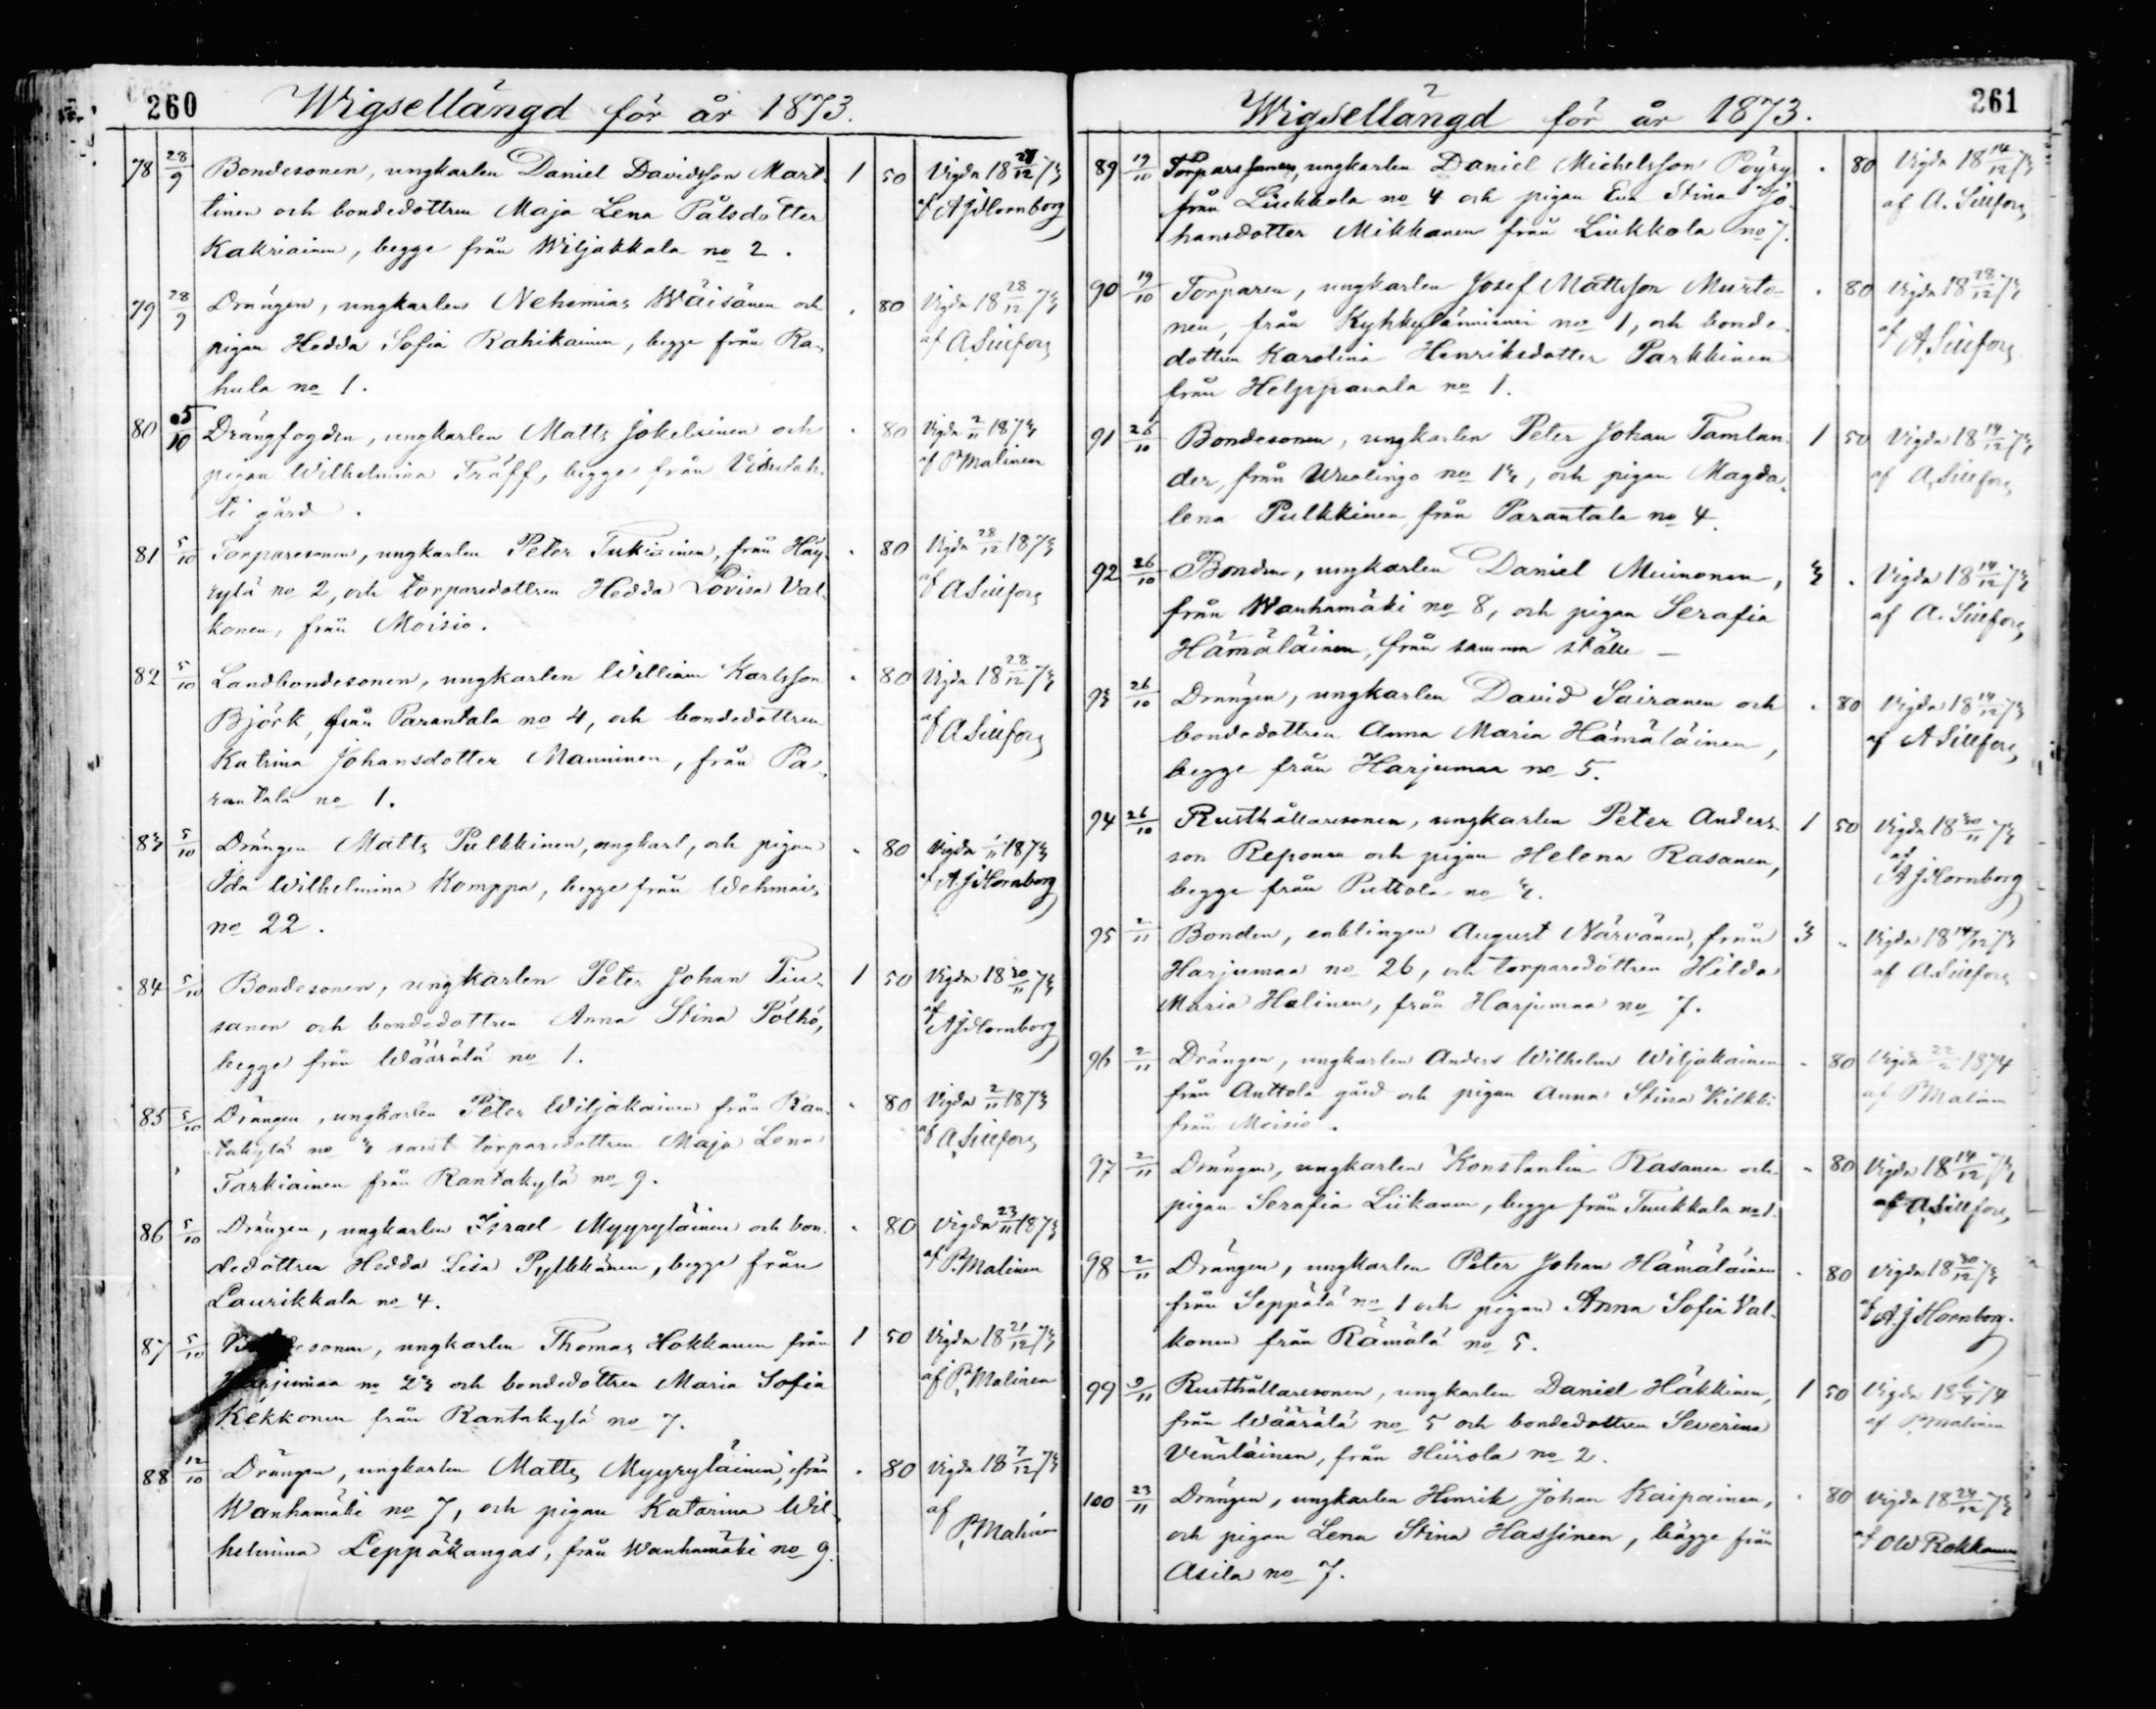 260
Wigsellängd för år 1873.
78 28/9 Bondesonen, ungkarlen Daniel Davidsson Mart- 1 50 Vigda 18 21/12 73
tinen och bondedottren Maja Lena Pålsdotter af AJHornborg
Kakriainen, begge från Wiljakkala no 2.
79 28/9 Drängen, ungkarlen Nehemias Wäisänen och . 80 Vigda 18 28/12 73
pigan Hedda Sofia Rahikainen, begge från Ra- af A Sillfors
hula no 1.
80 05/10 Drängfogden, ungkarlen Matts Jokelainen och . 80 Vigda 2/11 1873
pigan Wilhelmina Träff, begge från af P Malinen
ti gård.
81 5/10 Torparesonen, ungkarlen Peter Tukiainen, från Häy- . 80 Vigda 28/12 1873
rylä no 2, och torparedottren Hedda Lovisa Val- af A Sillfors
konen, från Moisio.
82 5/10 Landbondesonen, ungkarlen William Karlsson . 80 Vigda 18 28/12 73
Björk, från Parantala no 4, och bondedottren af A Sillfors
Katrina Johansdotter Manninen, från Pa-
rantala no 1.
83 5/10 Drängen Matts Pulkkinen, ungkarl, och pigan . 80 Vigda 1/11 1873
Ida Wilhelmina Komppa, begge från Wehmais af AJHornborg
no 22.
84 5/10 Bondesonen, ungkarlen Peter Johan Tiu- 1 50 Vigda 18 30/11 73
sanen och bondedottren Anna Stina Pölhö, af AJHornborg
begge från Wäärälä no 1.
85 5/10 Drängen, ungkarlen Peter Wiljakainen från Ran- . 80 Vigda 2/11 1873
takylä no 3 samt torparedottren Maja Lena af A. Sillfors
Tarkiainen från Rantakylä no 9.
86 5/10 Drängen, ungkarlen Israel Myyryläinen och bon- . 80 Vigda 23/11 1873
dedottren Hedda Lisa Pylkkänen, begge från af P. Malinen
Laurikkala no 4.
87 5/10 Bondesonen, ungkarlen Thomas Hokkanen från 1 50 Vigda 18 21/12 73
Harjumaa no 23 och bondedottren Maria Sofia af P. Malinen
Kekkonen från Rantakylä no 7.
88 12/10 Drängen, ungkarlen Matts Myyryläinen, från . 80 Vigda 18 7/12 73
Wanhamäki no 7, och pigan Katarina Wil- af
helmina Leppäkangas, från Wanhamäki no 9. P. Malinen
261
Wigsellängd för år 1873.
89 19/10 Torparesonen, ungkarlen Daniel Michelsson Pöyry . 80 Vigda 18 14/12 73
från Liukkola no 4 och pigan Eva Stina Jo- af A. Sillfors
hansdotter Mikkanen från Liukkola no 7.
90 19/10 Torparen, ungkarlen Josef Mattsson Murto- . 80 Vigda 18 28/12 73
nen, från Kyhkylänniemi no 1, och bonde- af A. Sillfors
dottren Karolina Henriksdotter Parkkinen
från Helppanala no 1.
91 26/10 Bondesonen, ungkarlen Peter Johan Tamlan- 1 50 Vigda 18 14/12 73
der, från no 13, och pigan Magda- af A. Sillfors
lena Pulkkinen, från Parantala no 4.
92 26/10 Bonden, ungkarlen Daniel Muinonen, 3 . Vigda 18 14/12 73
från Wanhamäki no 8, och pigan Serafia af A. Sillfors
Hämäläinen, från samma ställe —
93 26/10 Drängen, ungkarlen David Sairanen och . 80 Vigda 18 14/12 73
bondedottren Anna Maria Hämäläinen, af A Sillfors
begge från Harjumaa no 5.
94 26/10 Rusthållaresonen, ungkarlen Peter Anders- 1 50 Vigda 18 30/11 73
son Reponen och pigan Helena Rasanen, af AJHornborg
begge från Puttola no 3.
95 2/11 Bonden, enklingen August Närvänen, från 3 . Vigda 18 14/12 73
Harjumaa no 26, och torparedottren Hilda af A. Sillfors
Maria Halinen, från Harjumaa no 7.
96 2/11 Drängen, ungkarlen Anders Wilhelm Wiljakainen . 80 Vigda 1874
från Anttola gård och pigan Anna Stina Kilkki af P Malinen
från Moisio.
97 2/11 Drängen, ungkarlen Konstantin Rasanen och . 80 Vigda 18 14/12 73
pigan Serafia Liikanen, begge från Tuukkala no 1. af A. Sillfors
98 2/11 Drängen, ungkarlen Peter Johan Hämäläinen . 80 Vigda 18 30/12 73
från Seppälä no 1 och pigan Anna Sofia Val- af AJ Hornborg.
konen från Rämälä no 5.
99 9/11 Rusthållaresonen, ungkarlen Daniel Häkkinen, 1 50 Vigda 18 6/4 74
från Wäärälä no 5 och bondedottren Severina af P. Malinen
Venäläinen, från Hiirola no 2.
100 23/11 Drängen, ungkarlen Henrik Johan Kaipainen, . 80 Vigda 18 24/12 73
och pigan Lena Stina Hassinen, bägge från af OW Rokkanen
Asila no 7.